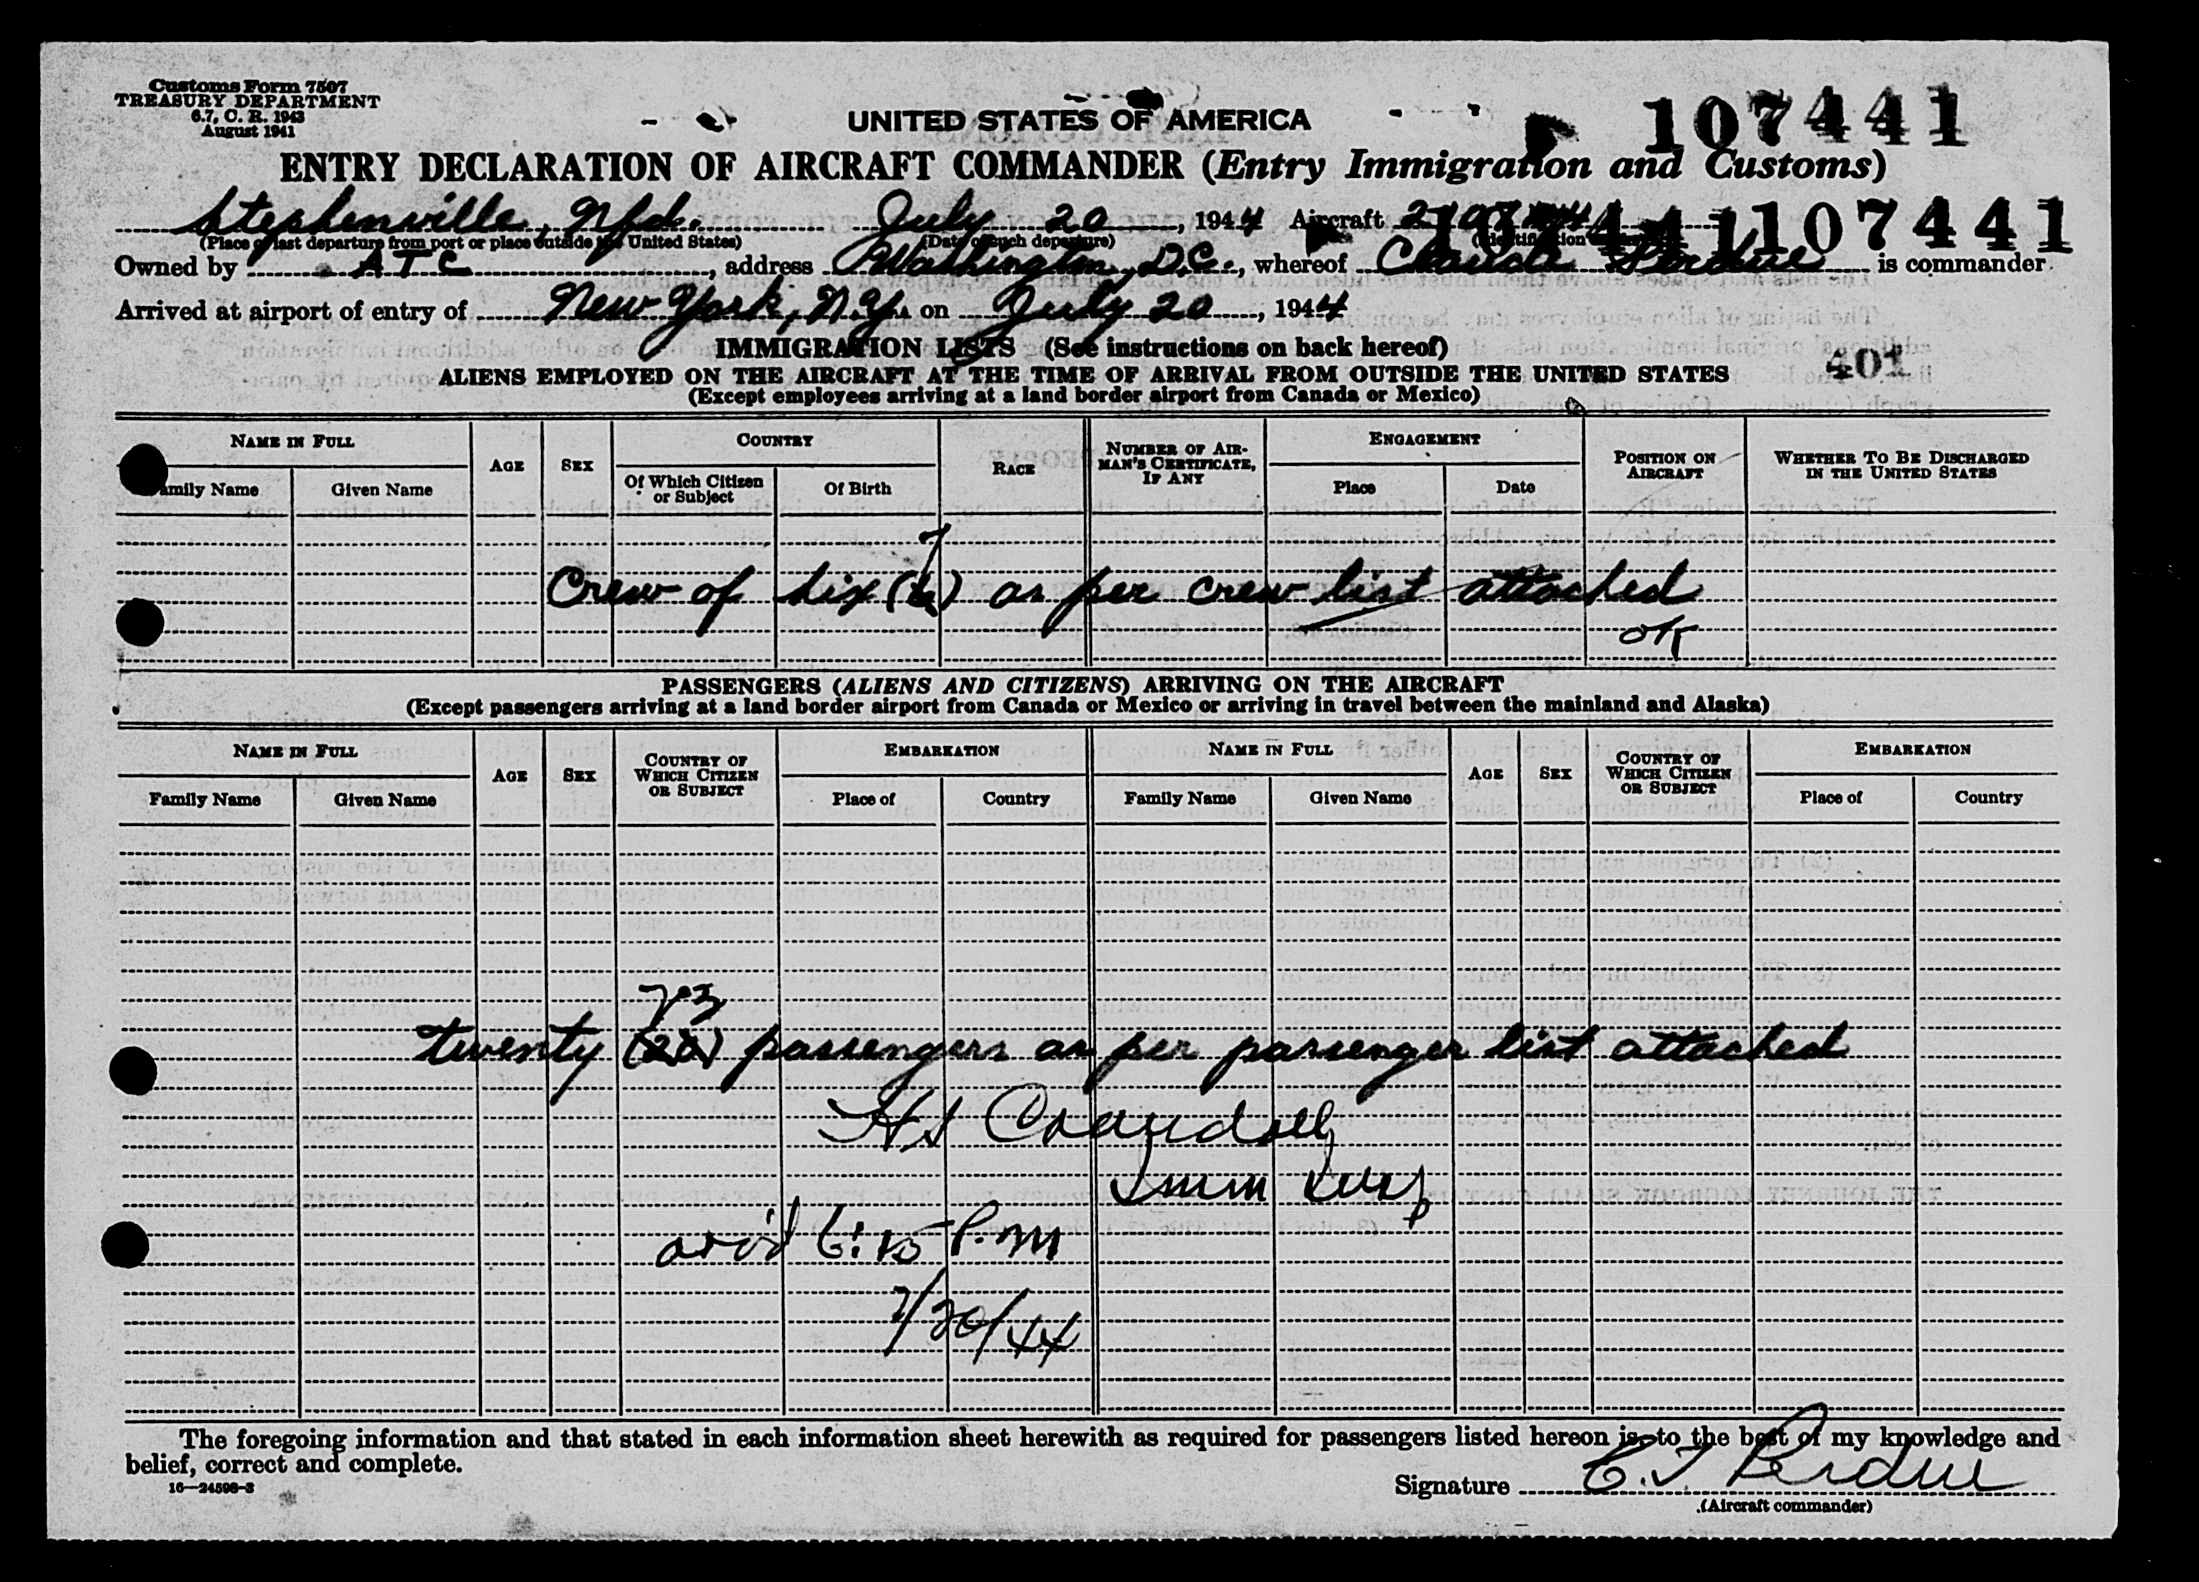 Customs Form 7507
TREASURY DEPARTMENT
6.7, C. R. 1943
August 1941
UNITED STATES OF AMERICA
107441
ENTRY DECLARATION OF AIRCRAFT COMMANDER (Entry Immigration and Customs)
Stephenville, Nfd. July 20, 1944 Aircraft 107441
(Place of last departure from port or place outside the United States) (Date of such departure)
Owned by ATC, address Washington, D.C., whereof Claude Perdue is commander.
Arrived at airport of entry of New York, N.Y. on July 20, 1944
IMMIGRATION LISTS (See instructions on back hereof)
401
ALIENS EMPLOYED ON THE AIRCRAFT AT THE TIME OF ARRIVAL FROM OUTSIDE THE UNITED STATES
(Except employees arriving at a land border airport from Canada or Mexico)
NAME IN FULL AGE SEX COUNTRY RACE NUMBER OF AIRMAN'S CERTIFICATE, IF ANY ENGAGEMENT POSITION ON AIRCRAFT WHETHER TO BE DISCHARGED IN THE UNITED STATES
Family Name Given Name Of Which Citizen or Subject Of Birth Place Date
7
Crew of six (6) as per crew list attached
OK
PASSENGERS (ALIENS AND CITIZENS) ARRIVING ON THE AIRCRAFT
(Except passengers arriving at a land border airport from Canada or Mexico or arriving in travel between the mainland and Alaska)
NAME IN FULL AGE SEX COUNTRY OF WHICH CITIZEN OR SUBJECT EMBARKATION NAME IN FULL AGE SEX COUNTRY OF WHICH CITIZEN OR SUBJECT EMBARKATION
Family Name Given Name Place of Country Family Name Given Name Place of Country
23
twenty (20) passengers as per passenger list attached
HS Crandall
Imm Insp
arr'd 6:15 P.M
7/20/44
The foregoing information and that stated in each information sheet herewith as required for passengers listed hereon is to the best of my knowledge and
belief, correct and complete.
16—24598-3
Signature C.T. Perdue
(Aircraft commander)